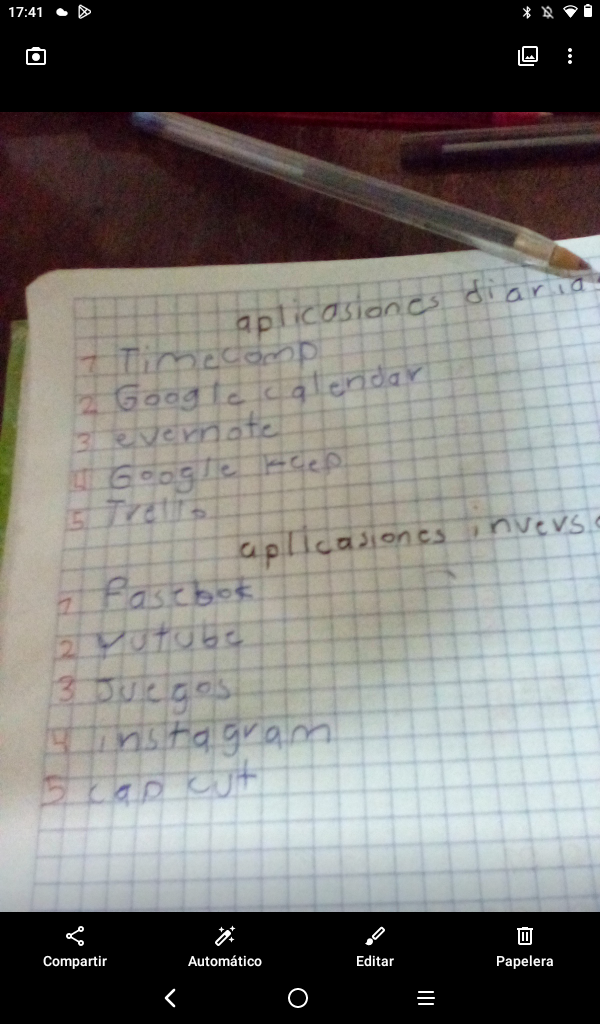 17:41
aplicasiones diaria
1 Timecamp
2 Google calendar
3 evernote
4 Google keep
5 Trello
aplicasiones invers
1 Fasebok
2 Yutube
3 Juegos
4 instagram
5 cap cut
Compartir Automático Editar Papelera